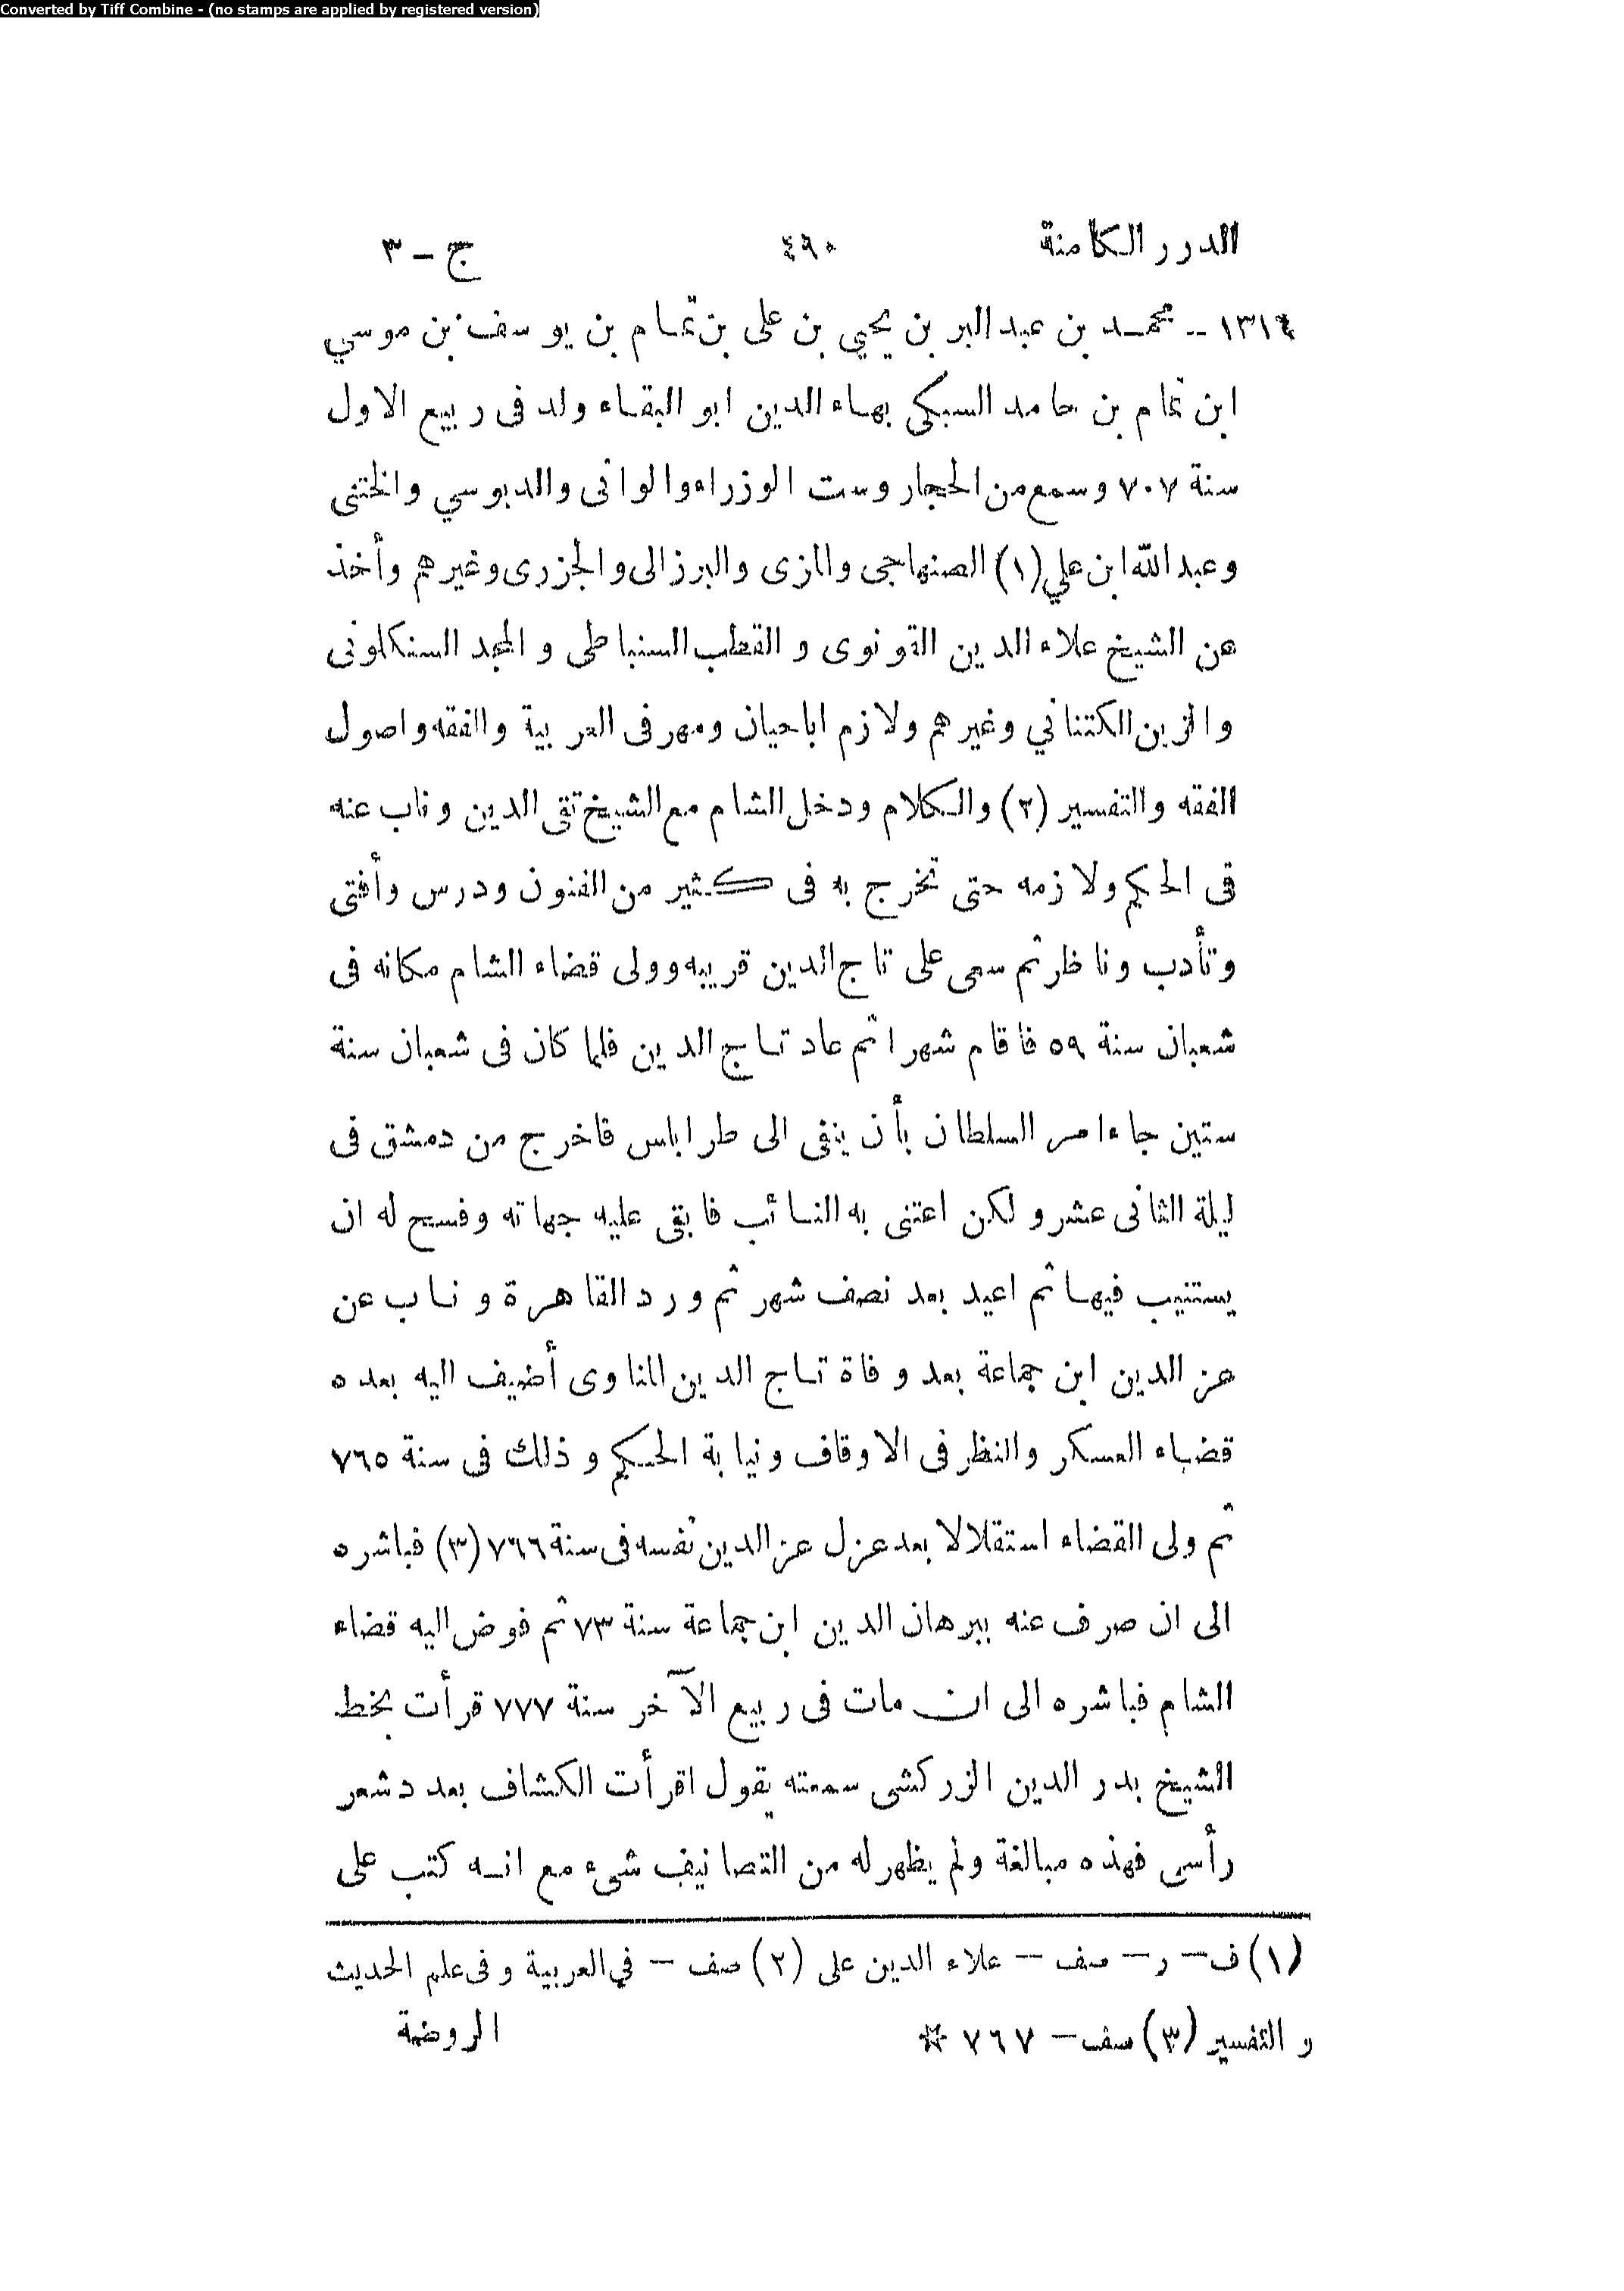 Converted by Tiff Combine - (no stamps are applied by registered version)
الدرر الكامنة ٤٩٠ ج - ٣
١٣١٤ -- محمد بن عبد البر بن يحيي بن على بن تمام بن يوسف بن موسي
ابن تمام بن حامد السبكى بهاء الدين ابو البقاء ولد فى ربيع الاول
سنة ٧٠٧ وسمع من الحجار وست الوزراء والوانى والدبوسي والختنى
وعبد الله ابن علي (١) الصنهاجى والمزى والبرزالى والجزرى وغيرهم وأخذ
عن الشيخ علاء الدين القونوى و القطب السنباطى و المجد السنكلونى
والزين الكتناني وغيرهم ولازم ابا حيان ومهر فى العربية والفقه واصول
الفقه والتفسير (٢) والكلام ودخل الشام مع الشيخ تقى الدين وناب عنه
فى الحكم ولازمه حتى تخرج به فى كثير من الفنون ودرس وأفتى
وتأدب وناظر ثم سعى على تاج الدين قريبه وولى قضاء الشام مكانه فى
شعبان سنة ٥٩ فأقام شهرا ثم عاد تاج الدين فلما كان فى شعبان سنة
ستين جاء امر السلطان بأن ينفى الى طراباس فاخرج من دمشق فى
ليلة الثانى عشر و لكن اعتنى به النائب فابقى عليه جهاته وفسح له ان
يستنيب فيها ثم اعيد بعد نصف شهر ثم ورد القاهرة وناب عن
عز الدين ابن جماعة بعد وفاة تاج الدين المناوى أضيف اليه بعده
قضاء العسكر والنظر فى الاوقاف ونيابة الحكم وذلك فى سنة ٧٦٥
ثم ولى القضاء استقلالا بعد عزل عز الدين نفسه فى سنة ٧٦٦ (٣) فباشره
الى ان صرف عنه ببرهان الدين ابن جماعة سنة ٧٣ ثم فوض اليه قضاء
الشام فباشره الى ان مات فى ربيع الآخر سنة ٧٧٧ قرأت بخط
الشيخ بدر الدين الزركشى سمعته يقول اقرأت الكشاف بعدد شعر
رأسى فهذه مبالغة ولم يظهر له من التصانيف شىء مع انه كتب على
(١) ف – ر – صف – علاء الدين على (٢) صف – في العربية و فى علم الحديث
و التفسير (٣) سف – ٧٦٧ ☆ الروضة